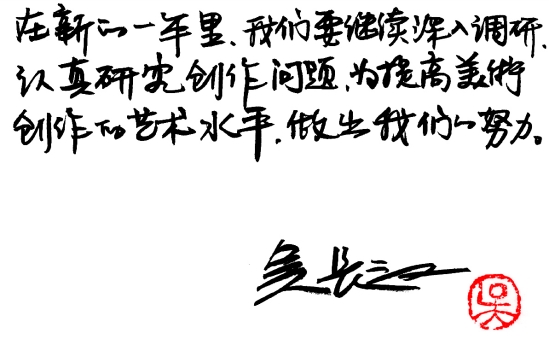 在新的一年里,我们要继续深入调研,
认真研究创作问题,为提高美術
创作的艺术水平,做出我们的努力。
吴长江
吴